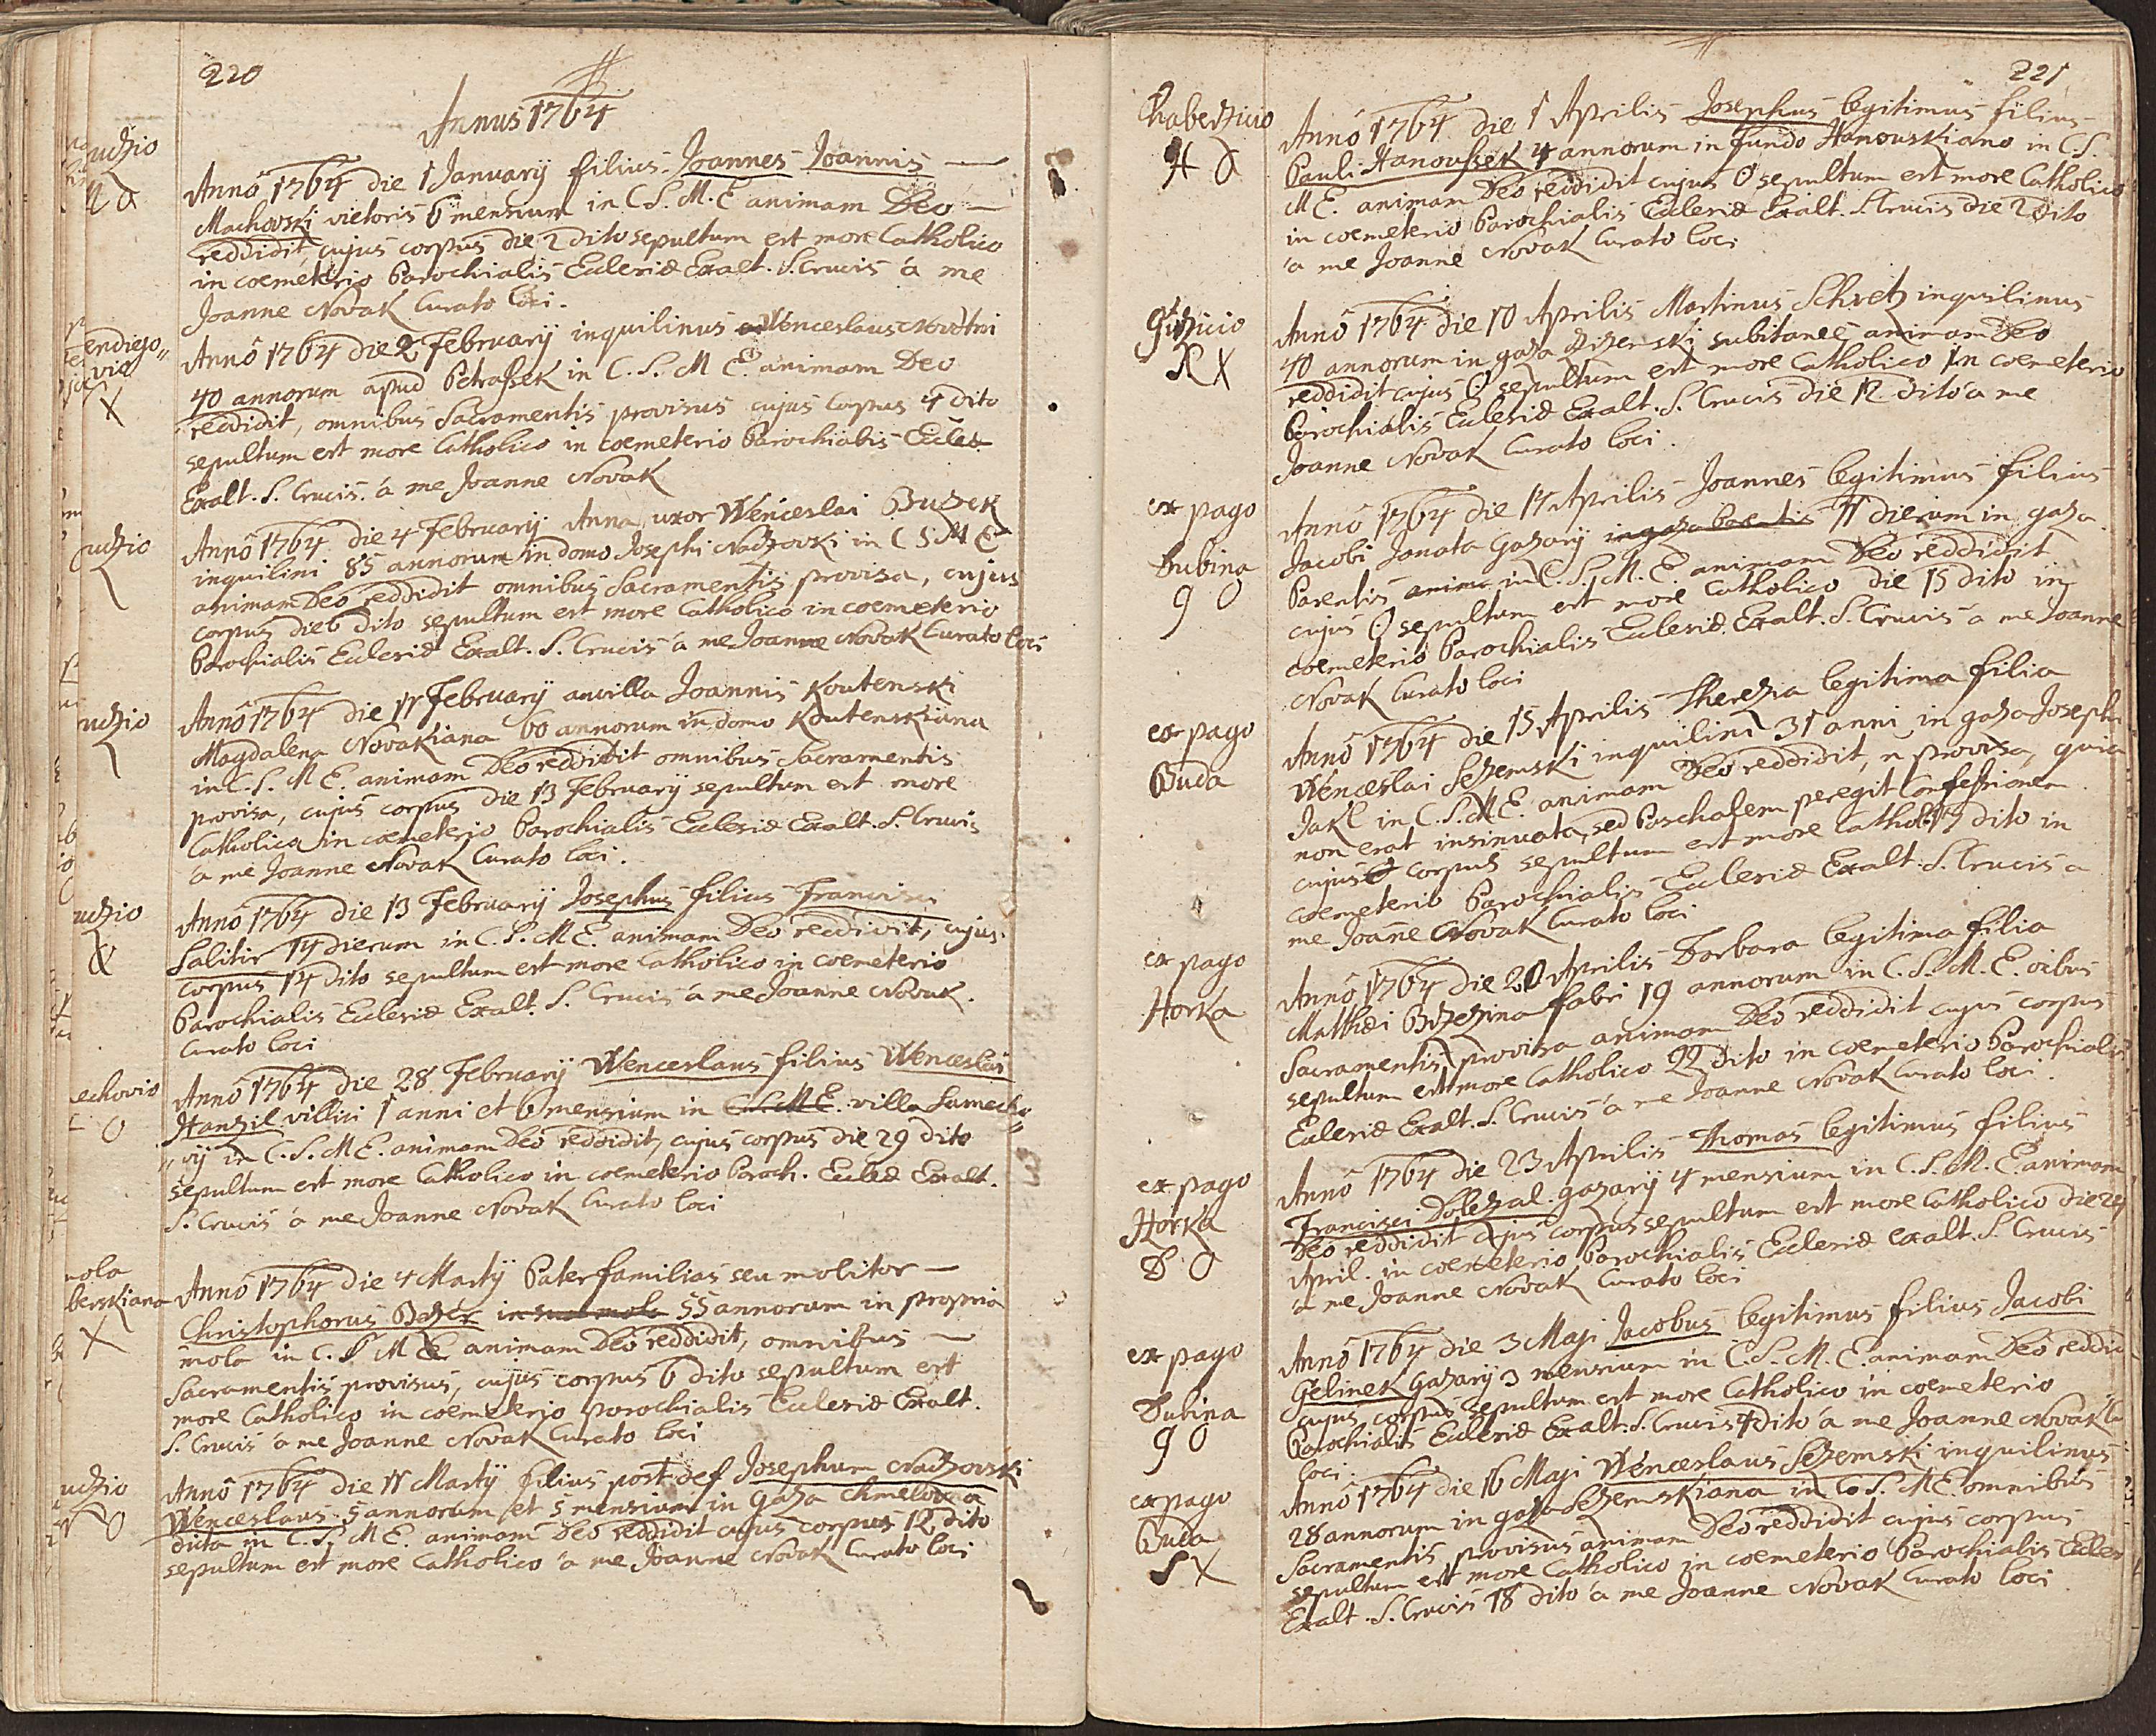 220
Annus 1764
udzio
Anno 1764 die 1 January filius Joannes Joannis
Machovski vietoris 6 mensium in C. S. M. E animam Deo
reddidit cujus corpus die 2 dito sepultum est more Catholico
in coemeterio Parochialis Eclesiæ Exalt. S. Crucis a me
Joanne Novak Curato loci.
Anno 1764 die 2 February inquilinus Wenceslaus Novotni
40 annorum apud Petrassek in C. S. M E. animam Deo
reddidit, omnibus Sacramentis provisus cujus Corpus 4 dito
sepultum est more Catholico in coemeterio Parochialis Ecles
Exalt. S. Crucis a me Joanne Novak
udzio
Anno 1764 die 4 February Anna uxor Wenceslai Buzek
inquilini 85 annorum in domo Josephi Nadzovski in C S. M E
animam Deo reddidit omnibus Sacramentis provisa, cujus
corpus die 6 dito sepultum est more Catholico in coemeterio
Parochialis Eclesiæ Exalt. S. Crucis a me Joanne Novak Curato loci
udzio
Anno 1764 die 11 February ancilla Joannis Koutenski
Magdalena Novakiana 60 annorum in domo Koutenskiana
in C. S. M E. animam Deo reddidit omnibus Sacramentis
provisa, cujus corpus die 13 February sepultum est more
Catholico in coemeterio Parochialis Eclesiæ Exalt. S. Crucis
a me Joanne Novak Curato loci.
udzio
Anno 1764 die 13 February Josephus filius Francisci
Salitir 14 dierum in C. S. M E. animam Deo reddidit, cujus
corpus 14 dito sepultum est more Catholico in coemeterio
Parochialis Eclesiæ Exalt. S. Crucis a me Joanne Novak.
Curato loci
echovio
Anno 1764 die 28 February Wenceslaus filius Wenceslai
Hanzil villici 1 anni et 6 mensium in C. S. M E. villa Lamecho„
„vij in C. S. M E. animam Deo reddidit, cujus corpus die 29 dito
sepultum est more Catholico in coemeterio Paroch. Eclæ Exalt.
S. Crucis a me Joanne Novak Curato loci
mola
berskiana
Anno 1764 die 4 Martij Paterfamilias seu molitor
Christophorus in sua mola 55 annorum in propria
mola in C. S M E. animam Deo reddidit, omnibus
Sacramentis provisus, cujus corpus 6 dito sepultum est
more Catholico in coemeterio parochialis Eclesiæ Exalt.
S. Crucis a me Joanne Novak Curato loci
udzio
Anno 1764 die 11 Martij filius post def Josephum Nadzovski
Wenceslaus 5 annorum et 5 mensium in Gaza Chmelovia
dicta in C. S. M E. animam Deo reddidit cujus corpus 12 dito
sepultum est more Catholico a me Joanne Novak Curato loci
221
Chaberzicio
H O
Anno 1764 die 1 Aprilis Josephus legitimus filius
Pauli Hanoussek 4 annorum in fundo Hanouskiano in C. S.
M E. animam Deo reddidit cujus O sepultum est more Catholico
in coemeterio Parochialis Eclesiæ Exalt. S. Crucis die 2 dito
a me Joanne Novak Curato loci
X
Anno 1764 die 10 Aprilis Martinus Schretz inquilinus
40 annorum in gaza subitanee animam Deo
reddidit cujus O sepultum est more Catholico in coemeterio
Parochialis Eclesiæ Exalt. S. Crucis die 12 dito a me
Joanne Novak Curato loci.
ex pago
Dubina
9 O
Anno 1764 die 14 Aprilis Joannes legitimus filius
Jacobi Janata Gazarij in gaza Parentis 11 dierum in gaza
Parentis anima in C. S. M. E. animam Deo reddidit
cujus O sepultum est more Catholico die 15 dito in
coemeterio Parochialis Eclesiæ Exalt. S. Crucis a me Joanne
Novak Curato loci
ex pago
Buda
Anno 1764 die 15 Aprilis Therezia legitima filia
Wenceslai Sezemski inquilini 31 anni in gaza Josephi
Jakl in C. S. M. E. animam Deo reddidit, n provisa, quia
non erat insinuata, sed Paschalem peregit Confessionem
cujus O corpus sepultum est more Cathol. 17 dito in
coemeterio Parochialis Eclesiæ Exalt. S. Crucis a
me Joanne Novak Curato loci
ex pago
Horka
Anno 1764 die 20 Aprilis Barbara legitima filia
Matthæi Brzezina fabri 19 annorum in C. S. M. E. oibus
Sacramentis provisa animam Deo reddidit cujus corpus
sepultum est more Catholico 22 dito in coemeterio Parochialis
Eclesiæ Exalt. S. Crucis a me Joanne Novak Curato loci.
ex pago
Horka
D O
Anno 1764 die 23 Aprilis Thomas legitimus filius
Francisci Dolezal gazarij 4 mensium in C. S. M. E. animam
Deo reddidit cujus corpus sepultum est more Catholico die 24
April. in coemeterio Parochialis Eclesiæ exalt. S. Crucis
a me Joanne Novak Curato loci
ex pago
Dubina
9 O
Anno 1764 die 3 Maji Jacobus legitimus filius Jacobi
Gelinek Gazarij 3 mensium in C. S. M. E. animam Deo reddid
cujus corpus sepultum est more Catholico in coemeterio
Parochialis Eclesiæ Exalt. S. Crucis 4 dito a me Joanne Novak Cu
loci.
ex pago
Buda
S X
Anno 1764 die 16 Maji Wenceslaus Sezemski inquilinus
28 annorum in gaza Sezemskiana in C. S. M E. omnibus
Sacramentis provisus animam Deo reddidit cujus corpus
sepultum est more Catholico in coemeterio Parochialis Ecles
Exalt. S. Crucis 18 dito a me Joanne Novak Curato loci